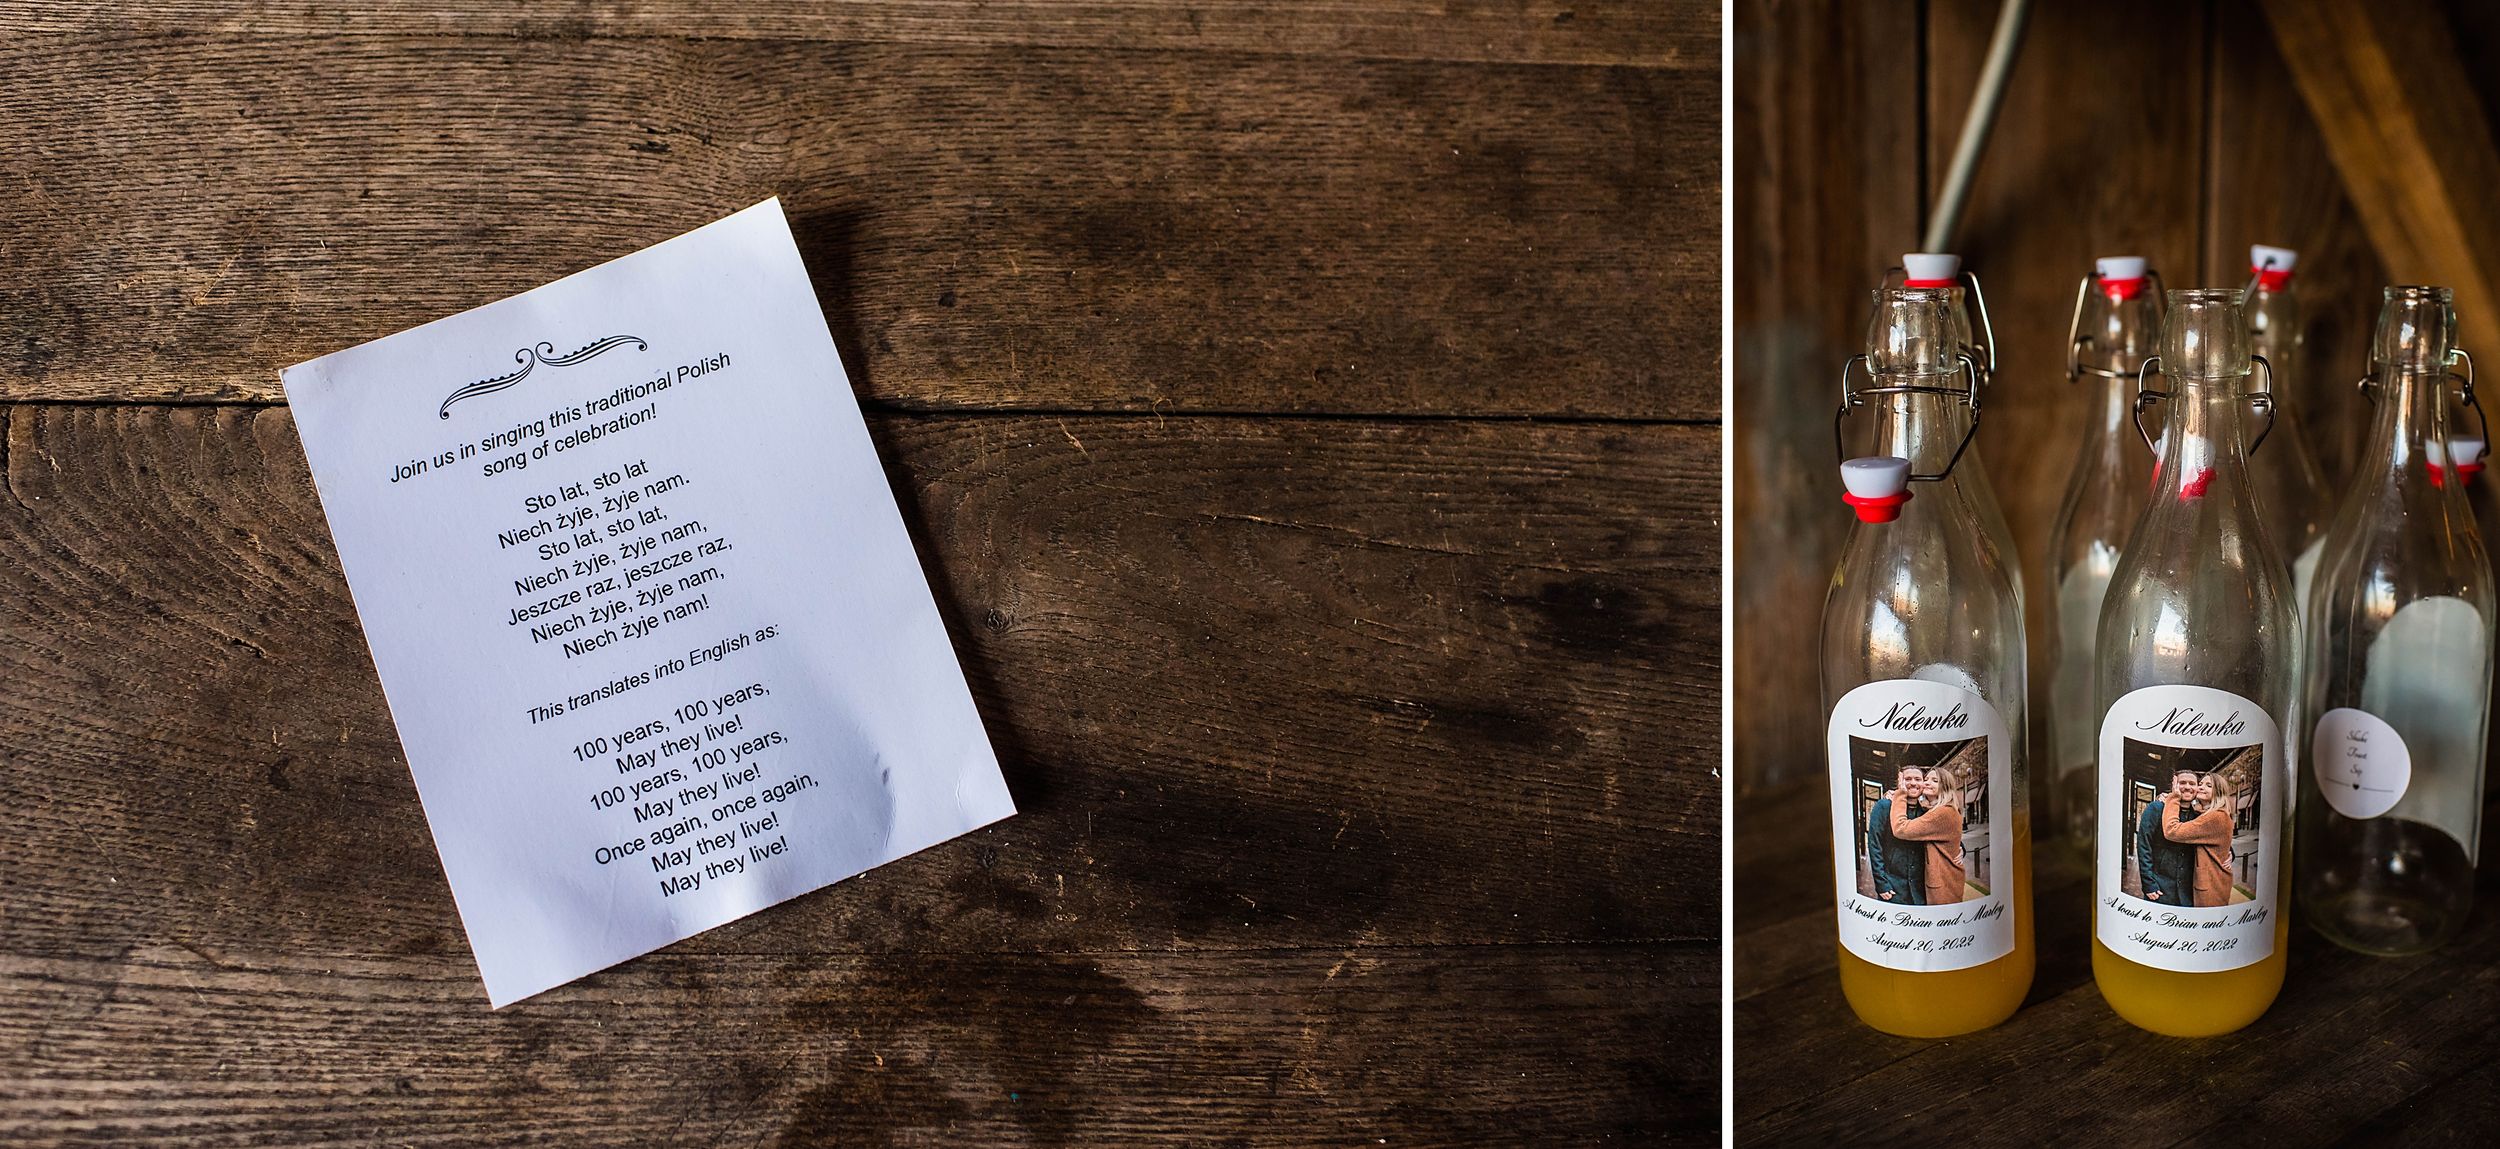 Join us in singing this traditional Polish
song of celebration!
Sto lat, sto lat
Niech żyje, żyje nam.
Sto lat, sto lat,
Niech żyje, żyje nam,
Jeszcze raz, jeszcze raz,
Niech żyje, żyje nam,
Niech żyje nam!
This translates into English as:
100 years, 100 years,
May they live!
100 years, 100 years,
May they live!
Once again, once again,
May they live!
May they live!
Nalewka
A toast to Brian and Marley
August 20, 2022
Nalewka
A toast to Brian and Marley
August 20, 2022
Shake
Toast
Sip